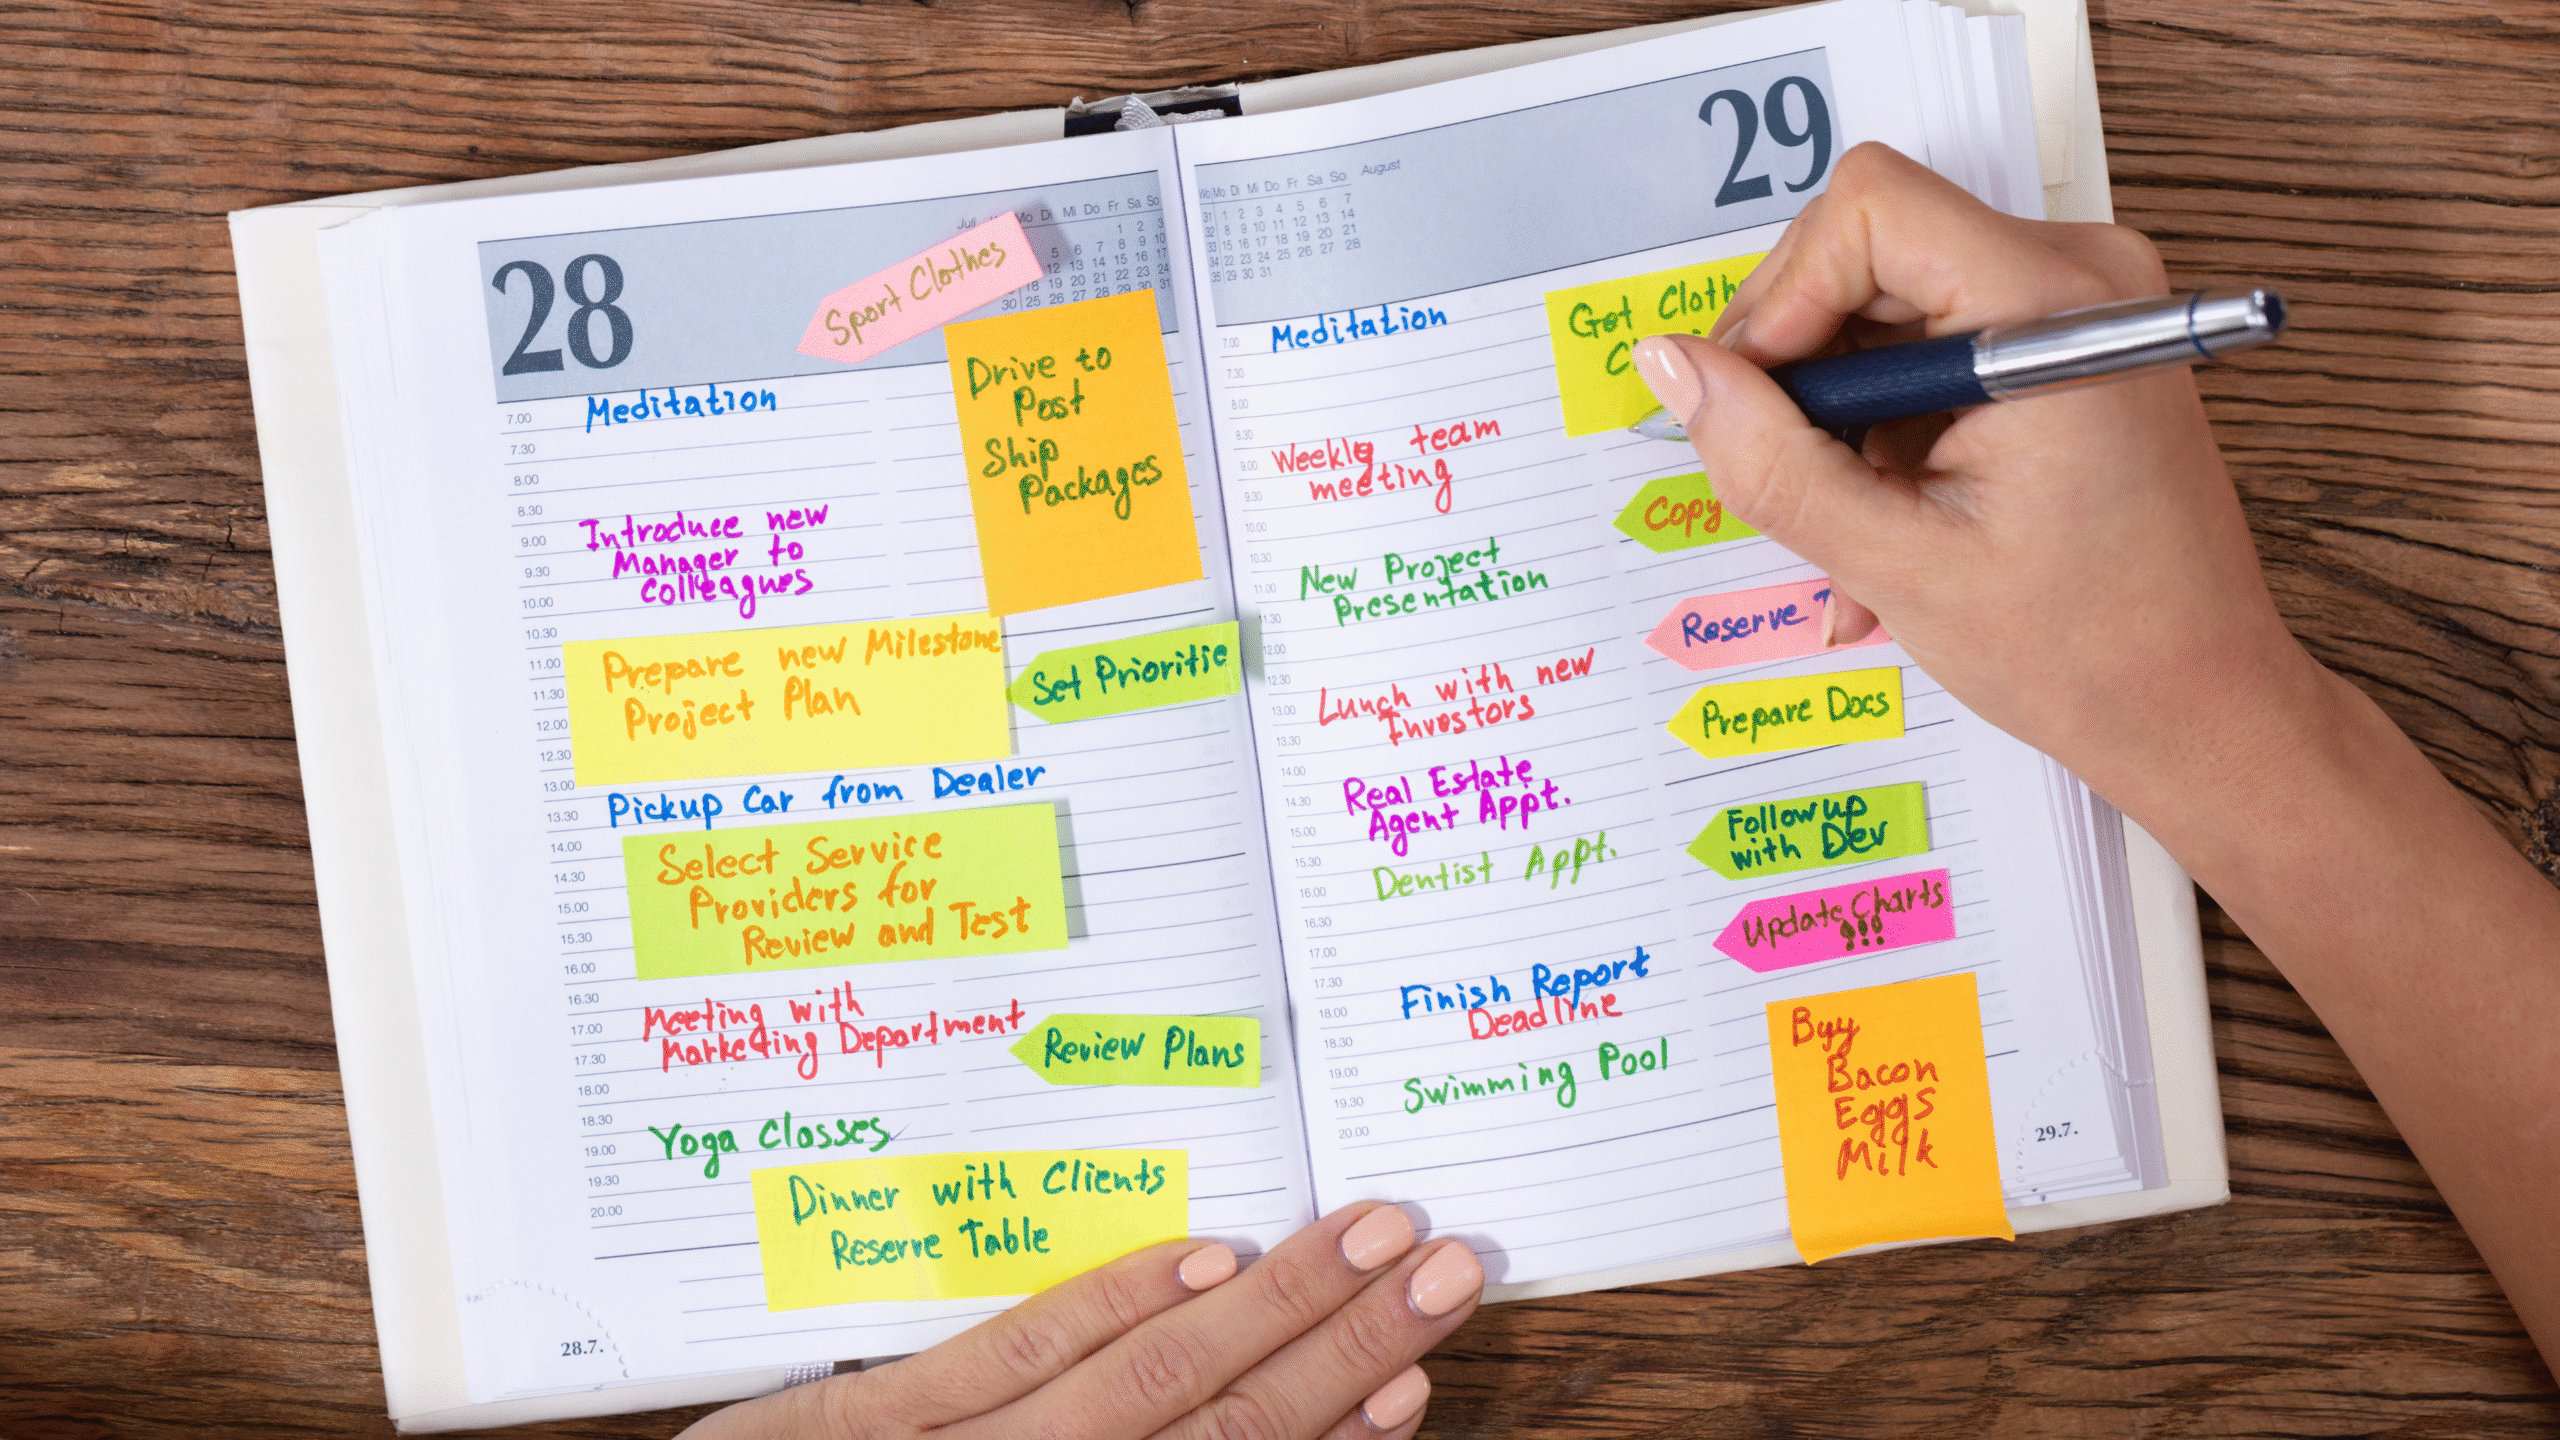 28
Juli
Mo Di Mi Do Fr Sa So
1 2 3
5 6 7 8 9 10
12 13 14 15 16 17
18 19 20 21 22 23 24
30 25 26 27 28 29 30 31
Sport Clothes
Drive to
Post
Ship
Packages
7.00
Meditation
7.30
8.00
8.30
Introduce new
9.00
Manager to
9.30
Colleagues
10.00
10.30
Prepare new Milestone
11.00
Project Plan
11.30
Set Prioritie
12.00
12.30
13.00
Pickup Car from Dealer
13.30
14.00
Select Service
14.30
Providers for
15.00
Review and Test
15.30
16.00
16.30
Meeting with
17.00
Marketing Department
17.30
Review Plans
18.00
18.30
Yoga Classes
19.00
19.30
Dinner with Clients
20.00
Reserve Table
28.7.
29
August
Wo Mo Di Mi Do Fr Sa So
31 1 2 3 4 5 6 7
32 8 9 10 11 12 13 14
33 15 16 17 18 19 20 21
34 22 23 24 25 26 27 28
35 29 30 31
7.00
Meditation
Get
7.30
8.00
8.30
Weekly team
9.00
meeting
9.30
Copy
10.00
10.30
New Project
11.00
Presentation
11.30
Reserve
12.00
12.30
Lunch with new
13.00
Investors
Prepare Docs
13.30
14.00
Real Estate
14.30
Agent Appt.
15.00
Follow up
with Dev
15.30
Dentist Appt.
16.00
Update Charts
!!!
16.30
17.00
17.30
Finish Report
18.00
Deadline
18.30
19.00
Swimming Pool
19.30
20.00
Buy
Bacon
Eggs
Milk
29.7.